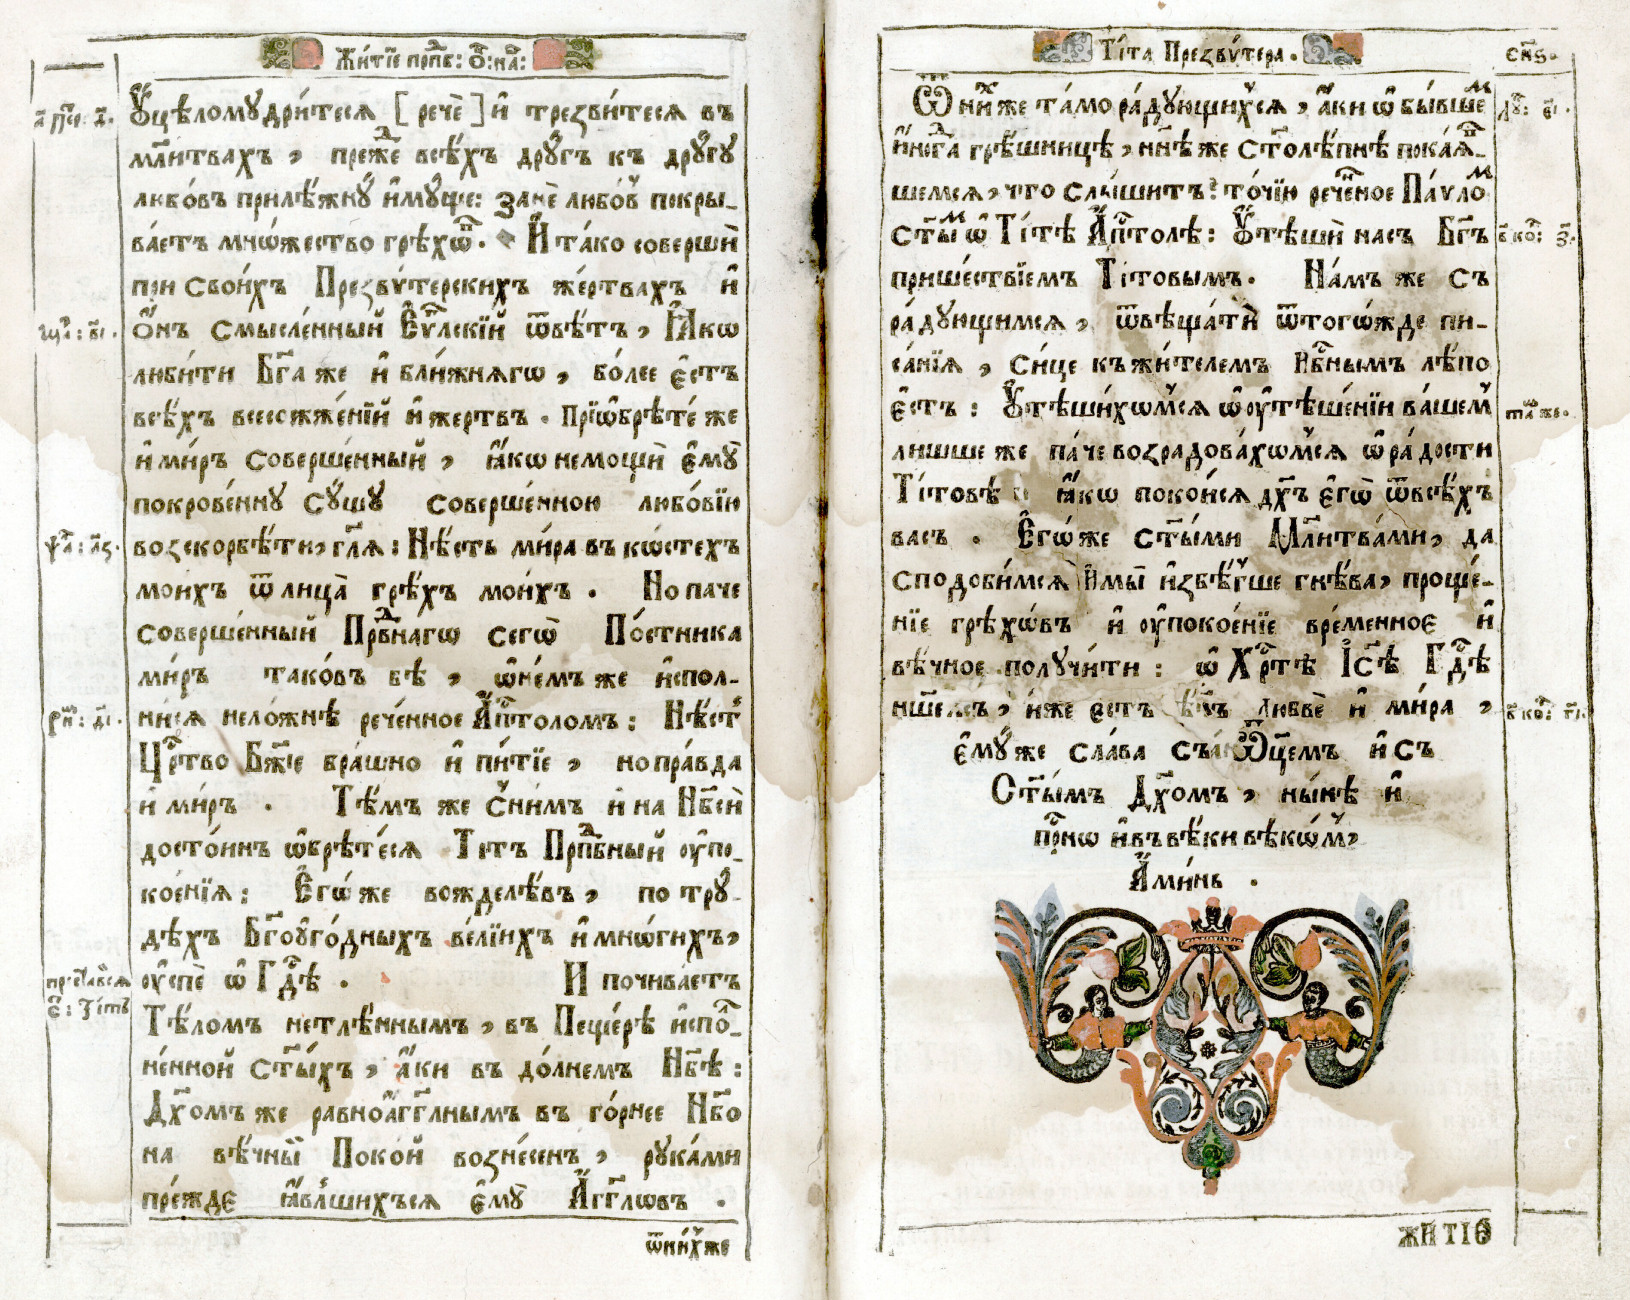 Жи́тїе прпⷣб: ѻ҃: на́:
а҃ пє: д҃.
Ѹ҆цѣломудри́теся [речѐ] и҆ трезви́теся въ
мл҃итвахъ, пре́жⷣе всѣ́хъ дрꙋ́гъ къ дрꙋ́гꙋ
любо́въ прилѣ́жнꙋ и҆мꙋ́ще: занѐ любо́в покры_
ва́етъ мно́жество грѣхѡⷡ҇. И҆ та́ко совершѝ
при свои́хъ Презвѵ́терскихъ же́ртвахъ и҆
ѻ҆́нъ смысле́нный Е҆ѵⷢ҇лскїй ѿвѣ́тъ, Ꙗ҆́кѡ
люби́ти Бг҃а же и҆ бли́жнягѡ, бо́лее є҆́стъ
всѣ́хъ всесожже́нїй и҆ жертвъ. Прїѡбрѣ́те же
и҆ ми́ръ соверше́нный, ꙗ҆́кѡ немощѝ є҆мꙋ̀
покрове́ннꙋ сꙋ́щꙋ соверше́нною любо́вїю
возскорбѣ́ти, гл҃я: Нѣ́сть ми́ра въ косте́хъ
мои́хъ ѿ лица̀ грѣ́хъ мои́хъ. Но паче
соверше́нный Прⷣбнагѡ сегѡ̀ По́стника
ми́ръ тако́въ бѣ̀, ѡ҆ не́мъ же и҆спол-
нися нело́жнѣ рече́нное А҆пⷭ҇толомъ: Нѣ́ст
Црⷭ҇тво Бж҃їе бра́шно и҆ пи́тїе, но пра́вда
и҆ ми́ръ. Тѣ́мъ же с̾ ни́мъ и҆ на Нб҃сѝ
досто́инъ ѡ҆брѣте́ся Ті́тъ Прпⷣбный ѹ҆по_
кое́нїя: Є҆гѡ́ же вожделѣ́въ, по трꙋ_
дѣ́хъ Бг҃оꙋго́дныхъ ве́лїихъ и҆ мнѡ́гихъ,
ѹ҆спѐ ѡ҆ Гдⷭ҇ѣ. И почива́етъ
Тѣ́ломъ нетлѣ́ннымъ, въ Пеще́рѣ и҆спо́_
не́нной ст҃ы́хъ, а҆́ки въ до́лнемъ Нб҃ѣ:
Дх҃омъ же равноа҆гг҃лнымъ въ го́рнее Нб҃о
на вѣ́чный Поко́й вознесе́нъ, рꙋка́ми
пре́жде ꙗ҆́вльшихъся є҆мꙋ̀ А҆́гг҃лѡвъ.
ѿ ни́хже
Ті́та Презвѵ́тера.
сн҃ѕ.
Ѿ ни́хже та́мо ра́дꙋющихся, а҆́ки ѡ҆ бы́вшеⷨ
и҆ногⷣа грѣ́шницѣ, нн҃ѣ же столѣ́пнѣ покаѧ́ⷡ_
шемся, что слы́шитъ? то́чїю рече́нное Па́ѵлоⷨ
ст҃ыⷨ ѡ҆ Ті́тѣ А҆пⷭ҇толѣ: Ѹ҆тѣшѝ насъ Бг҃ъ
в҃ ко: з҃.
прише́ствїемъ Ті́товымъ. На́мъ же съ
ра́дꙋющимся, ѿвѣща́ти ѿтогѡ́жде пи-
са́нїя, си́це къ жи́телемъ Нбⷭ҇нымъ лѣ́по
є҆́стъ: Ѹ҆тѣши́хѡмся ѡ҆ ѹ҆тѣше́нїи ва́шем
та́же.
лишше же па́че возрадова́хѡмся ѡ҆ ра́дости
Ті́товѣ ꙗ҆́кѡ поко́ися дх҃ъ є҆гѡ̀ ѿ всѣ́хъ
васъ. Є҆гѡ́ же ст҃ы́ми Мл҃итва́ми, да
сподоби́мся и҆ мы̀ и҆збѣ́гше гнѣ́ва, проще́-
нїе грѣхѡ́въ и҆ ѹ҆покое́нїе вре́менное и҆
вѣ́чное получи́ти: ѡ҆ Хрⷭ҇тѣ̀ І҆и҃сѣ Гдⷭ҇ѣ
нш҃емъ, и҆́же є҆́стъ Бг҃ъ любвѐ и҆ ми́ра,
в҃ ко: г҃і.
є҆мꙋ́ же сла́ва съ Ѻ҆тц҃емъ и҆ съ
Ст҃ы́мъ Дх҃омъ, ны́нѣ и҆
при́снѡ и҆ въ вѣ́ки вѣкѡ́мъ,
А҆ми́нь.
ЖИТІЕ